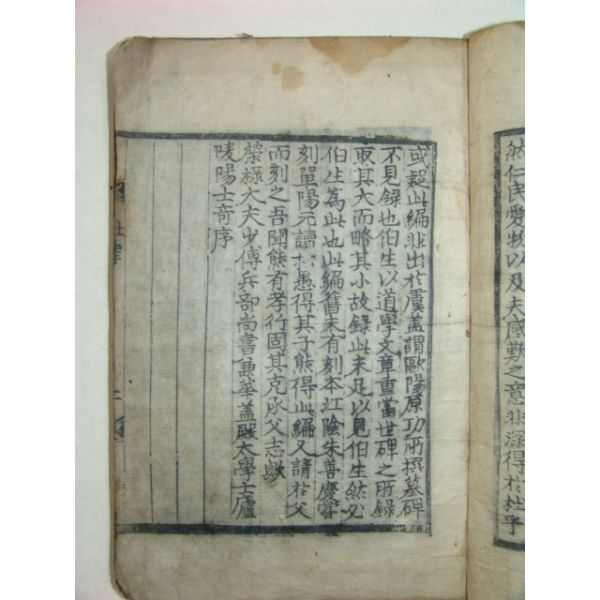 然仁民愛物以及夫感歎之意非深得於杜乎
或疑此編非出於虞蓋謂歐陽原功所撰墓碑
不見錄也伯生以道學文章重當世碑之所錄
取其大而略其小故錄此未足以見伯生然必
伯生爲此也此編舊未有刻本江陰朱善慶嘗
刻單陽元讀杜愚得其子熊得此編又請於父
而刻之吾聞熊有孝行固其克承父志歟
榮祿大夫少傅兵部尚書兼華蓋殿大學士廬
陵陽士奇序
杜律
二